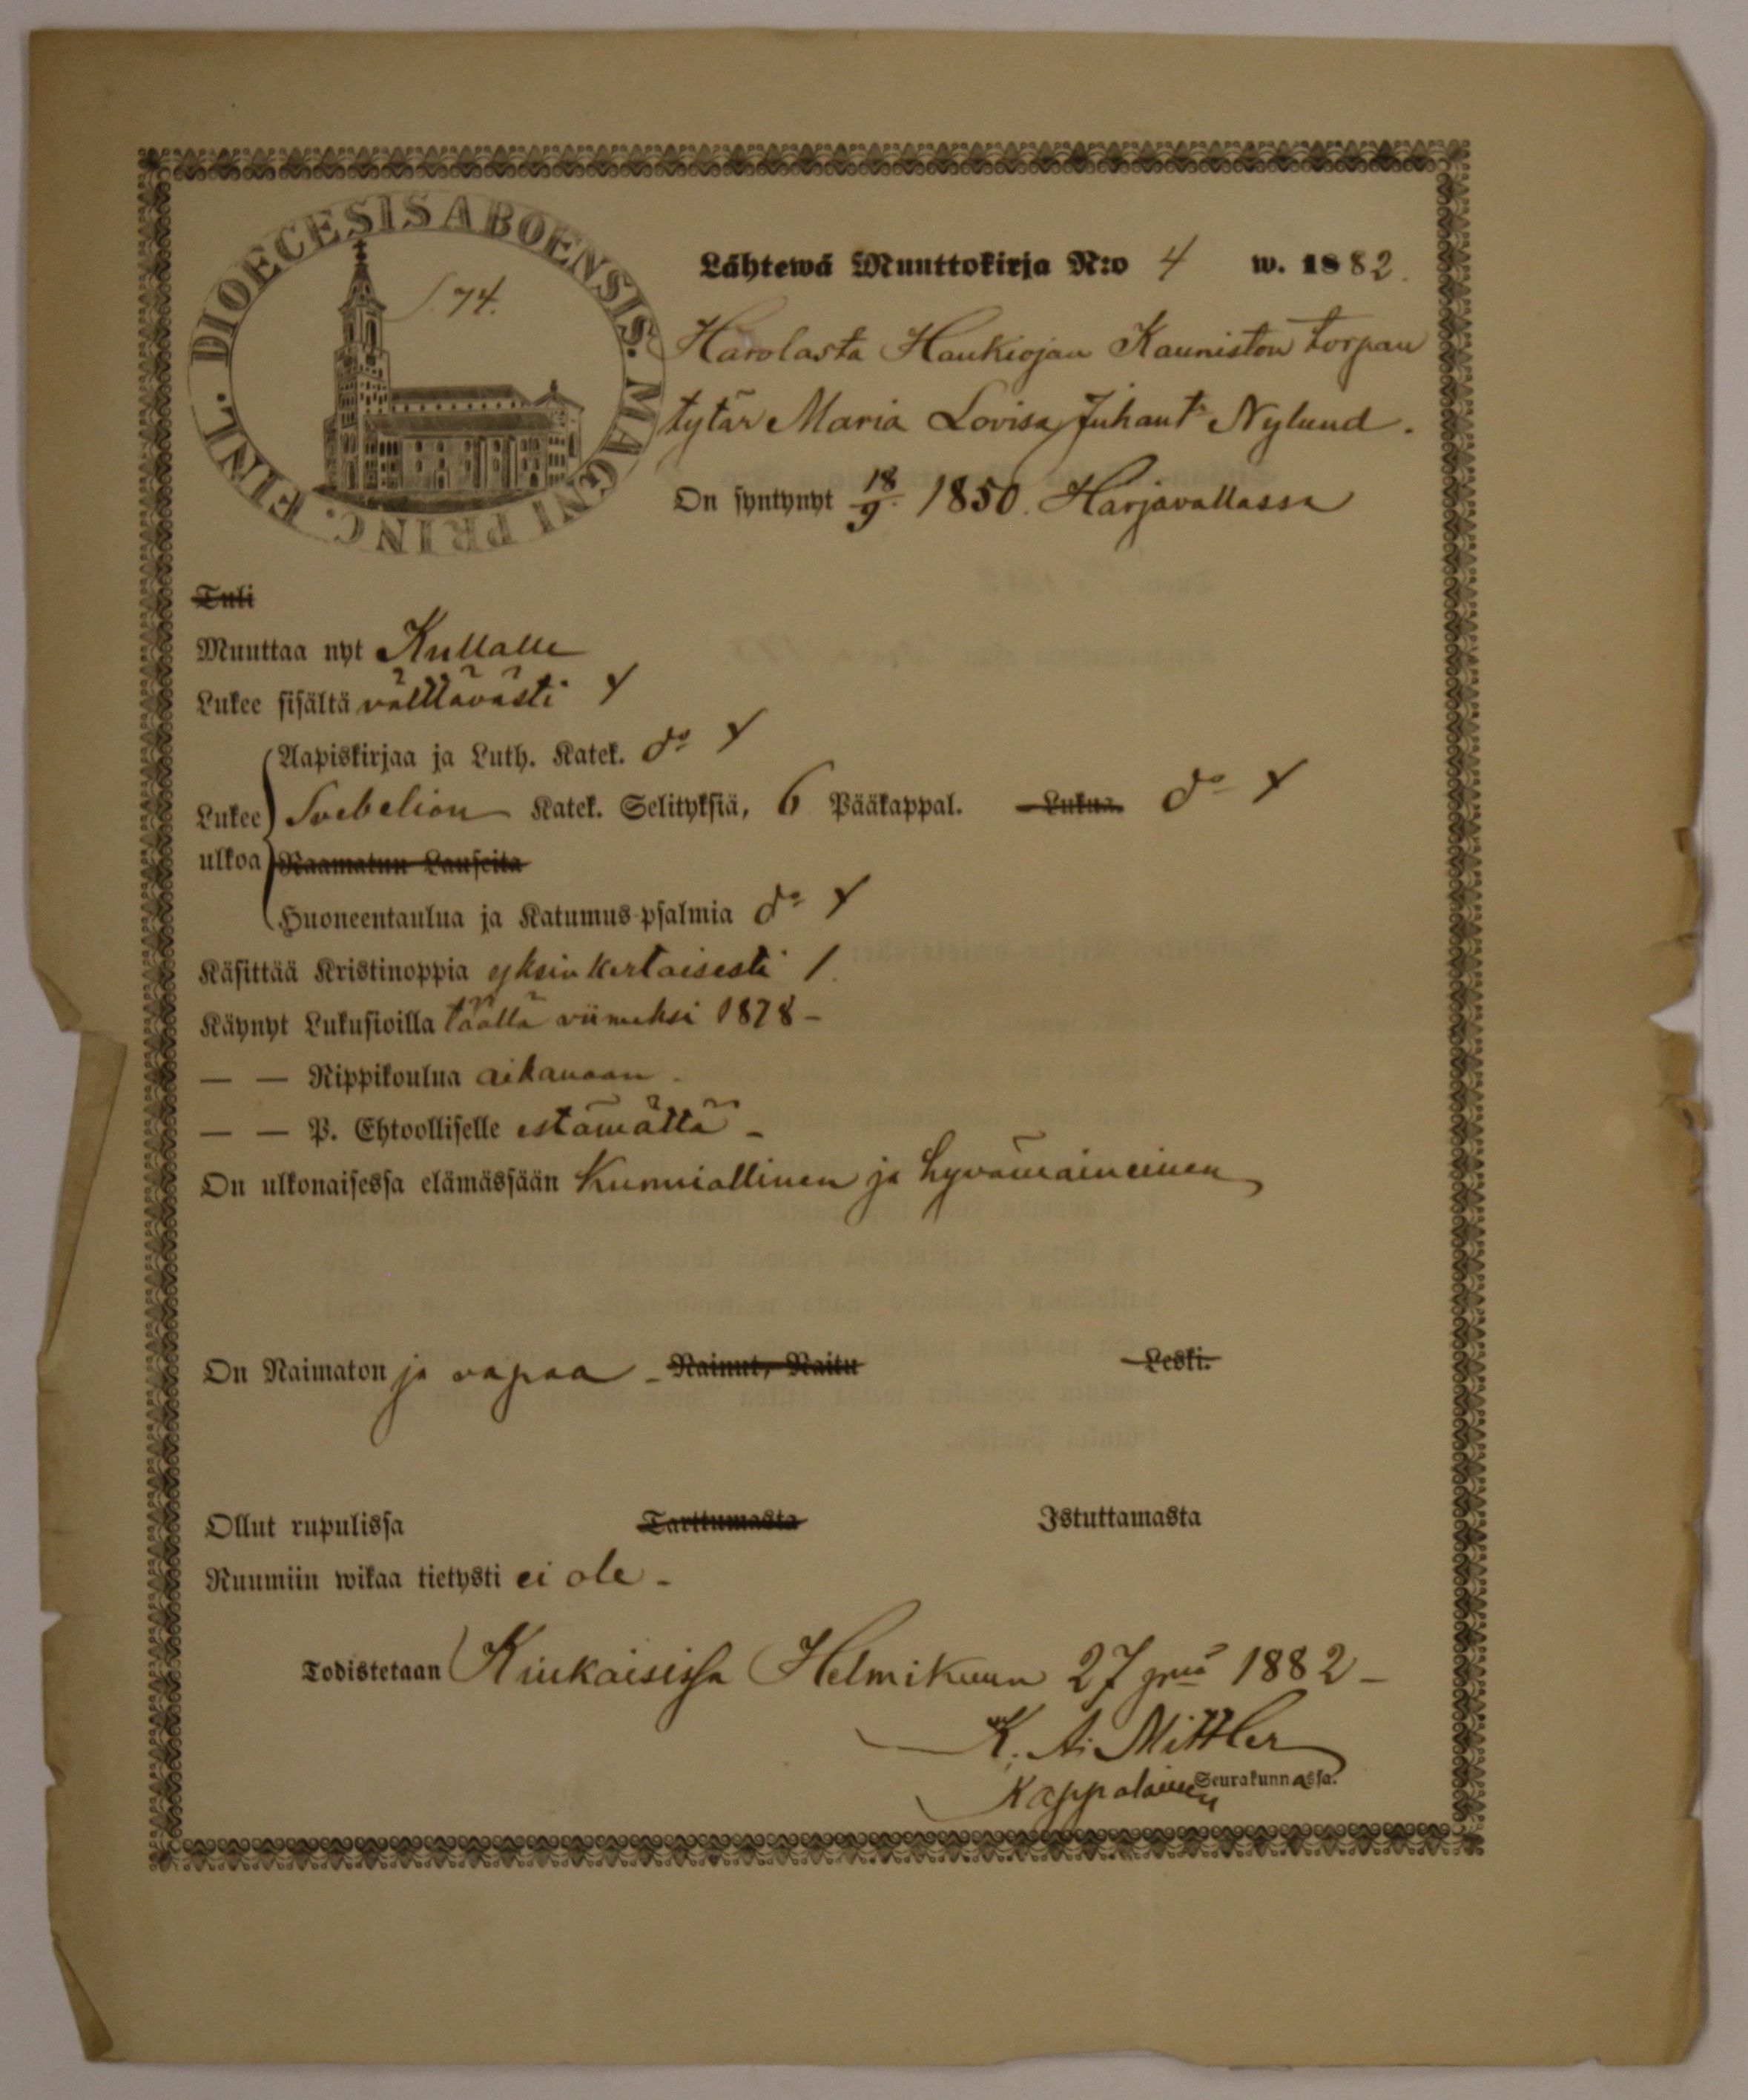 DIOECESIS ABOENSIS. MAGNI PRINC. FINL.
S. 74.
Lähtewä Muuttokirja N:o 4 w. 1882.
Harolasta Haukiojan Kauniston torpan
tytär Maria Lovisa Juhant:r Nylund.
On syntynyt 18/9 1850. Harjavallassa
Tuli
Muuttaa nyt Kullalle
Lukee sisältä välttävästi Y
Aapiskirjaa ja Luth. Katek. do Y
Lukee Svebelion Katek. Selityksiä, 6 Pääkappal. Lukua. do Y
ulkoa Raamatun Lauseita
Huoneentaulua ja Katumus-psalmia do Y
Käsittää Kristinoppia yksinkertaisesti /.
Käynyt Lukusioilla täällä viimeksi 1878 -
— — Rippikoulua aikanaan -
— — P. Ehtoolliselle estämättä -
On ulkonaisessa elämässään Kunniallinen ja hyvämaineinen
On Naimaton ja vapaa - Nainut, Naitu Leski.
Ollut rupulissa Tarttumasta Istuttamasta
Ruumiin wikaa tietysti ei ole -
Todistetaan Kiukaisissa Helmikuun 27 pnä 1882 -
K. A. Mittler
Kappalainen Seurakunnassa.